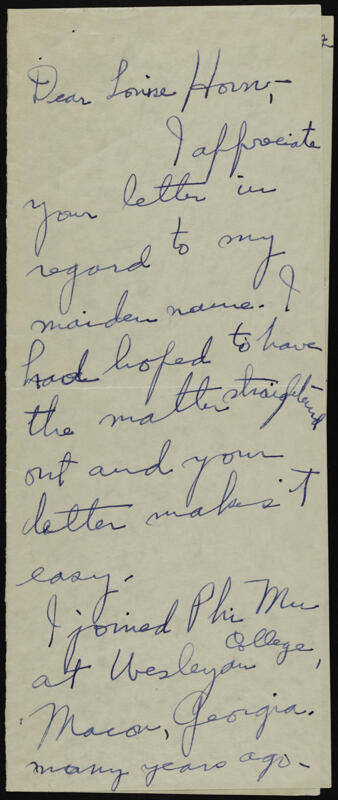 Dear Louise Horn,-
I appreciate
your letter in
regard to my
maiden name. I
had hoped to have
the matter straightened
out and your
letter makes it
easy.
I joined Phi Mu
at Wesleyan College,
Macon, Georgia.
many years ago-